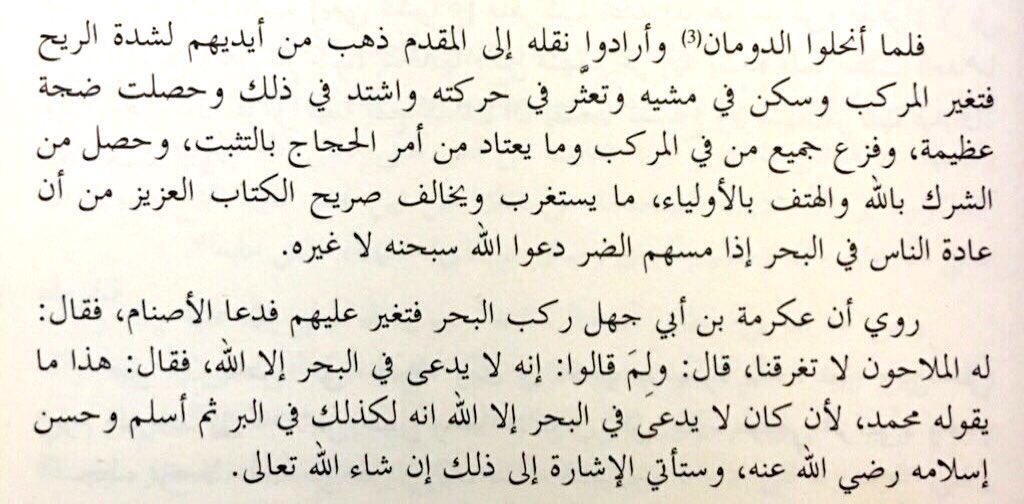 فلما أنحلوا الدومان(3) وأرادوا نقله إلى المقدم ذهب من أيديهم لشدة الريح
فتغير المركب وسكن في مشيه وتعثَّر في حركته واشتد في ذلك وحصلت ضجة
عظيمة، وفزع جميع من في المركب وما يعتاد من أمر الحجاج بالتثبت، وحصل من
الشرك بالله والهتف بالأولياء، ما يستغرب ويخالف صريح الكتاب العزيز من أن
عادة الناس في البحر إذا مسهم الضر دعوا الله سبحنه لا غيره.
روي أن عكرمة بن أبي جهل ركب البحر فتغير عليهم فدعا الأصنام، فقال:
له الملاحون لا تغرقنا، قال: ولِمَ قالوا: إنه لا يدعى في البحر إلا الله، فقال: هذا ما
يقوله محمد، لأن كان لا يدعى في البحر إلا الله انه لكذلك في البر ثم أسلم وحسن
إسلامه رضي الله عنه، وستأتي الإشارة إلى ذلك إن شاء الله تعالى.